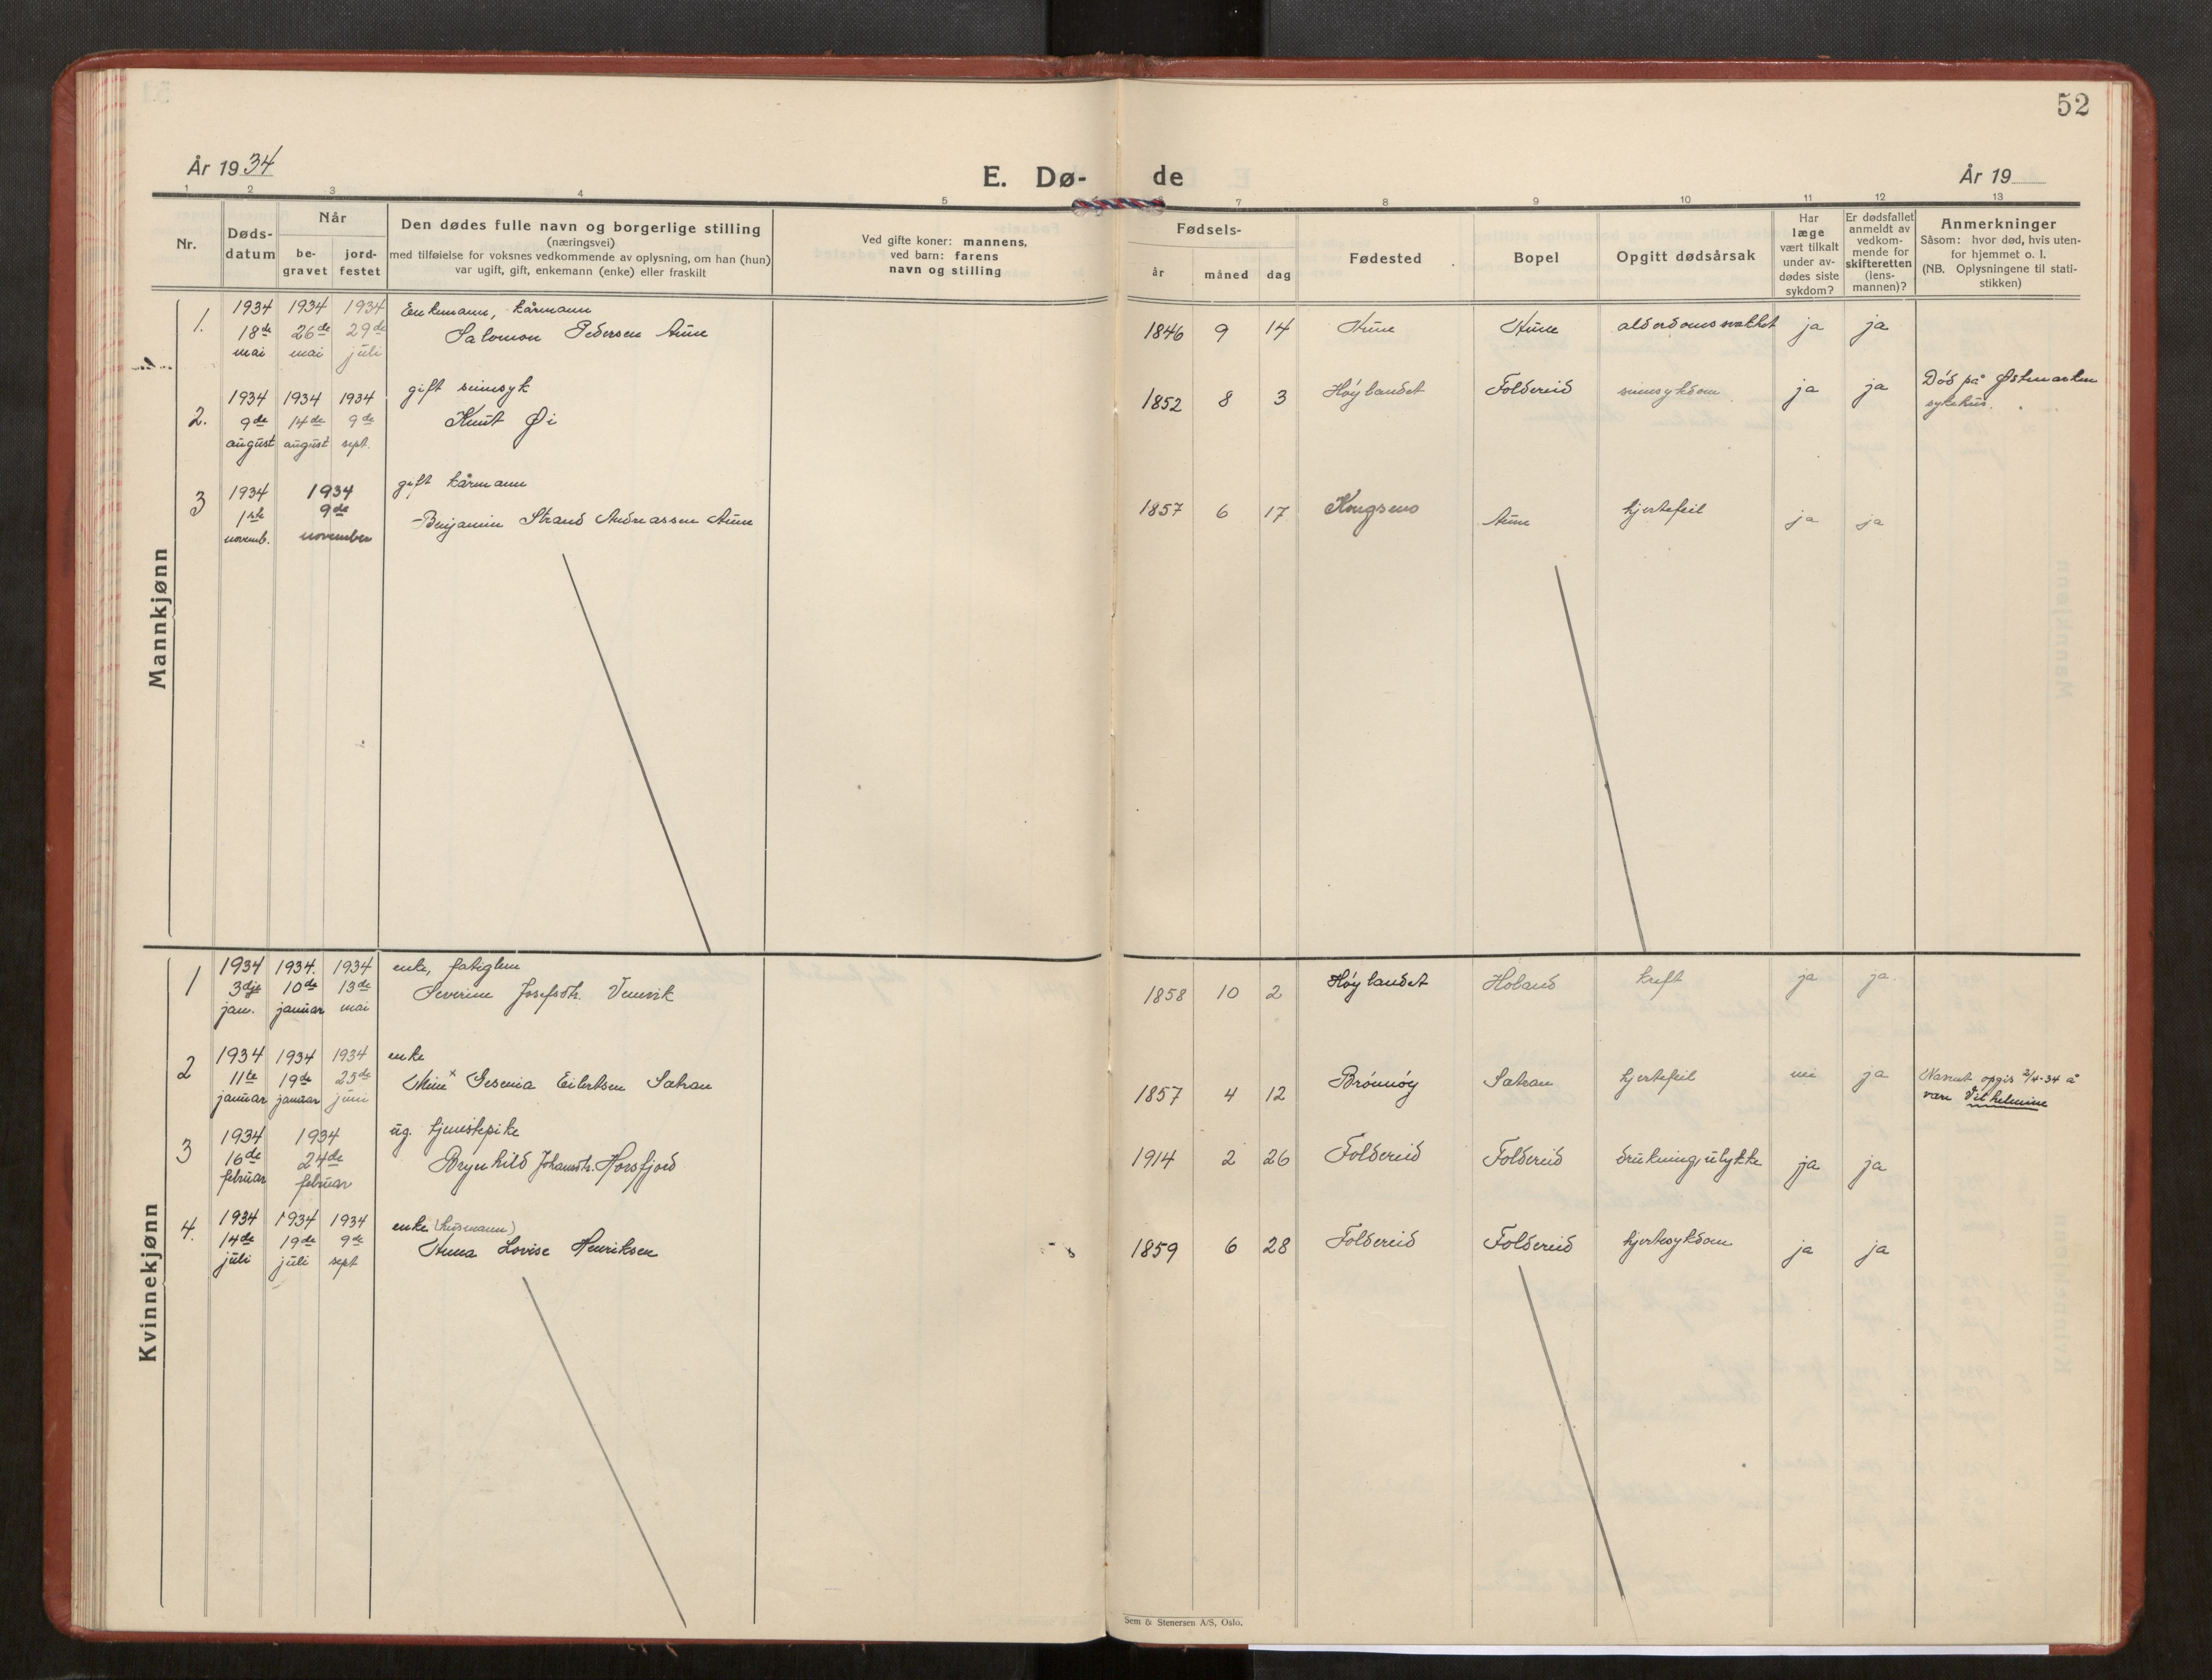 52
År 1934
E. Dø- de
År 19
1 2 3 4 5 7 8 9 10 11 12 13
Nr.
Døds-
datum
Når
be-
gravet
jord-
festet
Den dødes fulle navn og borgerlige stilling
(næringsvei)
med tilføielse for voksnes vedkommende av oplysning, om han (hun)
var ugift, gift, enkemann (enke) eller fraskilt
Ved gifte koner: mannens,
ved barn: farens
navn og stilling
Fødsels-
år måned dag
Fødested
Bopel
Opgitt dødsårsak
Har
læge
vært tilkalt
under av-
dødes siste
sykdom?
Er dødsfallet
anmeldt av
vedkom-
mende for
skifteretten
(lens-
mannen)?
Anmerkninger
Såsom: hvor død, hvis uten-
for hjemmet o. l.
(NB. Oplysningene til stati-
stikken)
Mannkjønn
1934 1934 1934 Enkemann, kårmann
1. 18de 26de 29de Salomon Pedersen Aune 1846 9 14 Aune Aune alderdomssvakhet ja ja
mai mai juli
1934 1934 1934 gift sinnsyk
2. 9de 14de 9de Knut Øi 1852 8 3 Høylandet Foldereid sinnsykdom ja ja Død på Østmarken
august august sept. sykehus.
1934 1934 gift kårmann
3 1ste 9de Benjamin Strand Andreassen Aune 1857 6 17 Kongsmo Aune hjertefeil ja ja
novemb. november
Kvinnekjønn
1934 1934. 1934 enke, fatiglem
1 3dje 10de 13de Severine Josefsdtr. Vennevik 1858 10 2 Høylandet Holand kreft ja ja.
jan. januar mai
1934 1934 1934 enke
2 11te 19de 25de Mine x Gesenia Eilertsen Satran 1857 4 12 Brønnøy Satran hjertefeil nei ja Navnet opgis 2/4-34 å
januar januar juni være Vilhelmine
1934 1934 ug. tjenestepike
3 16de 24de Brynhild Johansdtr. Horsfjord 1914 2 26 Foldereid Foldereid drukning, ulykke ja ja
februar februar
1934 1934 1934 enke (husmann)
4. 14de 19de 9de Anna Lovise Henriksen 1859 6 28 Foldereid Foldereid hjertesykdom ja ja
juli juli sept
Sem & Stenersen A/S, Oslo.